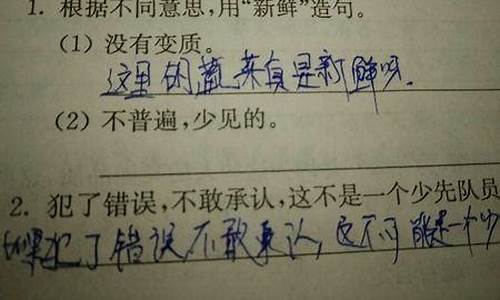 1. 根据不同意思,用“新鲜”造句。
(1) 没有变质。
这里的蔬菜真是新鲜呀。
(2) 不普遍,少见的。
2. 犯了错误,不敢承认,这不是一个少先队员
如果犯了错误不敢承认,这不可能是一个少